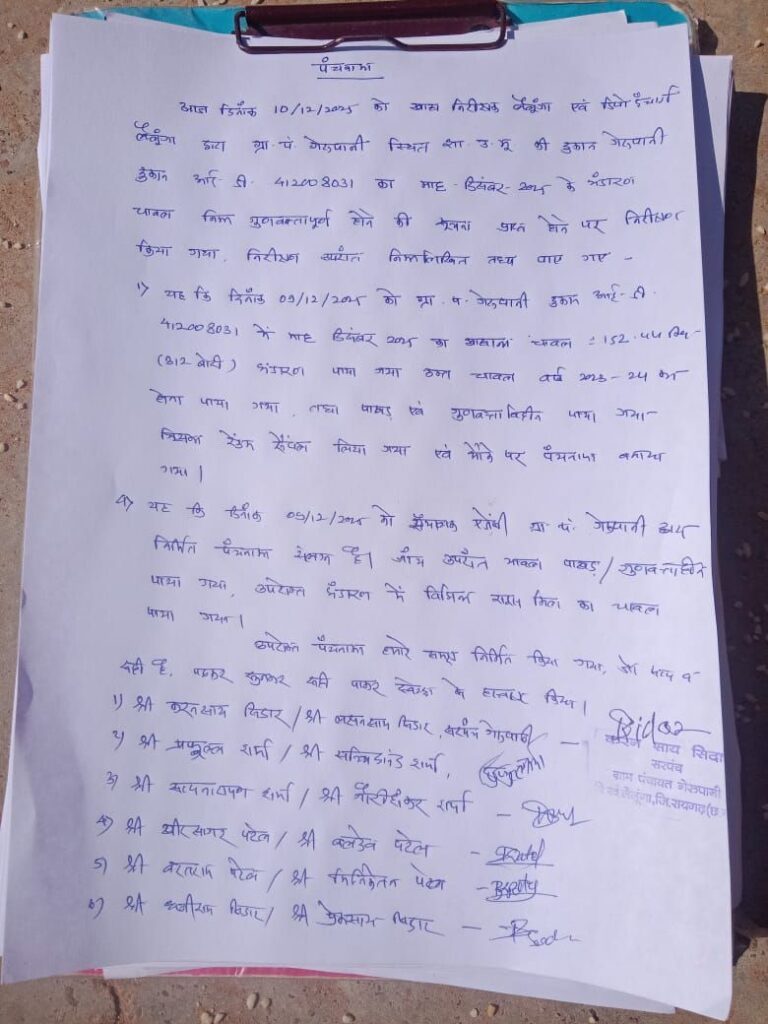 पंचनामा
आज दिनाँक 10/12/2025 को खाद्य निरीक्षक लैलूंगा एवं डिपो इंचार्ज
लैलूंगा द्वारा ग्रा. पं. गेरूपानी स्थित शा. उ. मू. की दुकान गेरूपानी
दुकान आई. डी. 412008031 का माह - दिसंबर - 2025 के भंडारण
चावल निम्न गुणवत्तापूर्ण होने की सूचना प्राप्त होने पर निरीक्षण
किया गया, निरीक्षण उपरांत निम्नलिखित तथ्य पाए गए -
1) यह कि दिनाँक 09/12/2025 को ग्रा. पं. गेरूपानी दुकान आई. डी.
412008031 में माह दिसंबर 2025 का चावल : 152.44
(312 बोरी) भंडारण पाया गया उक्त चावल वर्ष 2023-24 का
होना पाया गया, तथा पाखड़ एवं गुणवत्ताविहीन पाया गया
जिसका रेंडम सैंपल लिया गया एवं मौके पर पंचनामा बनाया
गया।
2) यह कि दिनाँक 09/12/2025 को संचालक एजेंसी ग्रा. पं. गेरूपानी द्वारा
निर्मित पंचनामा संलग्न है। जाँच उपरांत चावल पाखड़/गुणवत्ताहीन
पाया गया, उपरोक्त भंडारण में विभिन्न राइस मिल का चावल
पाया गया।
उपरोक्त पंचनामा हमारे समक्ष निर्मित किया गया, जो सत्य व
सही है, पढ़कर सुनकर सही पाकर स्वेच्छा से हस्ताक्षर किया।
1) श्री करनसाय सिदार / श्री सिदार, सरपंच गेरूपानी -
करन साय सिदार
सरपंच
ग्राम पंचायत गेरूपानी
वि.खं.लैलूंगा,जि.रायगढ़(छ.ग.)
2) श्री प्रफुल्ल शर्मा / श्री सच्चिदानंद शर्मा,
3) श्री सत्यनारायण शर्मा / श्री गौरीशंकर शर्मा -
4) श्री खीरसागर पटेल / श्री बलदेव पटेल -
5) श्री पटेल / श्री पटेल -
6) श्री सिदार / श्री प्रेमसाय सिदार -